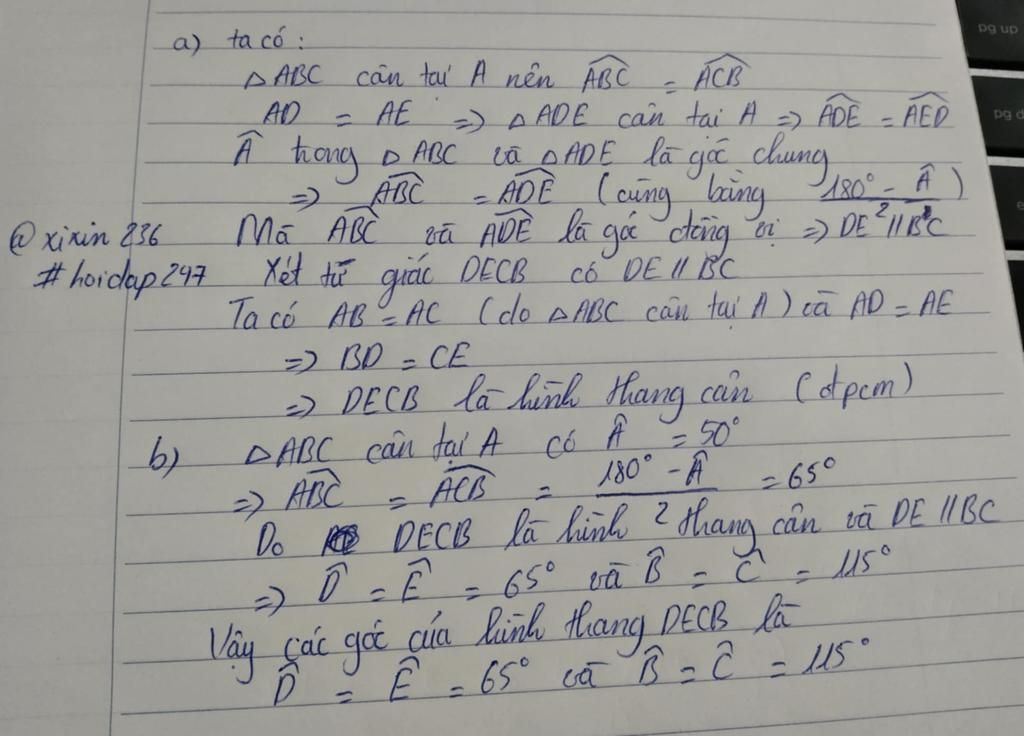 a) ta có:
△ABC cân tại A nên ABC^ = ACB^
AD = AE => △ADE cân tại A => ADE^ = AED^
A^ trong △ABC và △ADE là góc chung
=> ABC^ = ADE^ (cùng bằng (180° - A^)/2)
@xixin236 Mà ABC^ và ADE^ là góc đồng vị => DE // BC
#hoidap247 Xét tứ giác DECB có DE // BC
Ta có AB = AC (do △ABC cân tại A) và AD = AE
=> BD = CE
=> DECB là hình thang cân (đpcm)
b) △ABC cân tại A có A^ = 50°
=> ABC^ = ACB^ = (180° - A^)/2 = 65°
Do DECB là hình thang cân và DE // BC
=> D^ = E^ = 65° và B^ = C^ = 115°
Vậy các góc của hình thang DECB là
D^ = E^ = 65° và B^ = C^ = 115°
pg up
pg d